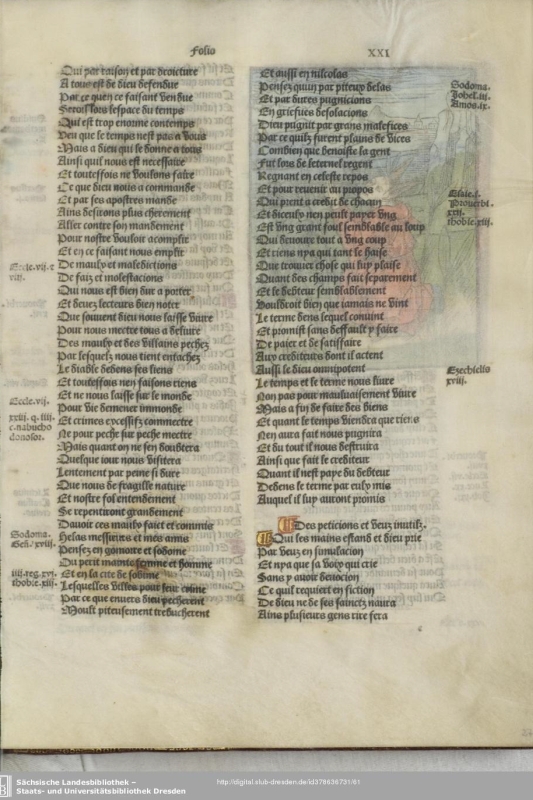 Folio
XXI
Qui par raison et par droicture
A tous est de dieu deffendue
Par ce quen ce faisant vendue
Seroit lors lespace du temps
Qui est trop enorme contemps
Veu que le temps nest pas a vous
Mais a dieu qui le donne a tous
Ainsi quil nous est necessaire
Et toutesfois ne voulons faire
Ce que dieu nous a commande
Et par ses apostres mande
Ains desirons plus cherement
Aller contre son mandement
Pour nostre vouloir acomplir
Et en ce faisant nous emplir
De maulx et maledictions
De faiz et molestacions
Qui nous est bien dur a porter
Et devez lecteurs bien noter
Que souvent dieu nous laisse vivre
Pour nous mectre tous a delivre
Des maulx et des villains pechez
Par lesquelz nous tient entachez
Le diable dedens ses liens
Et toutesfois nen faisons riens
Et ne nous laisse sur le monde
Pour vie demener immonde
Et crimes excessifz commectre
Ne pour peche sur peche mectre
Mais quant on ne sen doubtera
Quelque iour nous visitera
Lentement par peine si dure
Que nous de fragille nature
Et nostre fol entendement
Se repentiront grandement
Davoir ces maulx faict et commis
Helas messeurs et mes amis
Pensez en gomorre et sodome
Ou perit mainte femme et homme
Et en la cite de sobime
Lesquelles villes pour leur crime
Par ce que envers dieu pecherent
Moult piteusement trebucherent
Eccle.vii.
viii.
Eccle.vii.
xxiii. q. iiii
c.nabucho
donosor.
Sodoma.
Gen. xviii.
iiii.reg.xvi.
thobie.xiii.
Et aussi en nilcolas
Pensez quun par piteux helas
Et par dures pugnicions
En griefves desolacions
Dieu pugnit par grans malefices
Par ce quilz furent plains de vices
Combien que benoiste la gent
Fut lors de leternel regent
Regnant en celeste repos
Et pour revenir au propos
Qui prent a credit de chacun
Et diceulx rien peult payer ung
Est ung grant foul semblable au loup
Qui devoure tout a ung coup
Et riens nya qui tant le haise
Que trouver chose qui luy plaise
Quant des champs fait separement
Et le debteur semblablement
Vouldroit bien que iamais ne vint
Le terme dens lequel convint
Et promist sans deffault y faire
De paier et de satiffaire
Aux crediteurs dont il actent
Aussi le dieu omnipotent
Le temps et le terme nous livre
Non pas pour mauluaisement vivre
Mais a fin de faire des biens
Et quant le temps viendra que riens
Nen aura fait nous pugnira
Et du tout il nous destruira
Ainsi que fait le crediteur
Quant il nest paye du debteur
Dedens le terme par eulx mis
Auquel il luy auront promis
Des peticions et veuz inutilz.
Qui ses mains estand et dieu prie
Par veuz en simulacion
Et nya que sa voix qui crie
Sans y avoir devocion
Ce quil requiert en fiction
De dieu ne de ses sainctz naura
Ains plusieurs gens rire fera
Sodoma.
Johel.iii.
Amos.ix.
Esaie.l.
Proverbi.
xxii.
thobie.xiii.
Ezechielis
xviii.
Sächsische Landesbibliothek –
Staats- und Universitätsbibliothek Dresden
http://digital.slub-dresden.de/id378636731/61